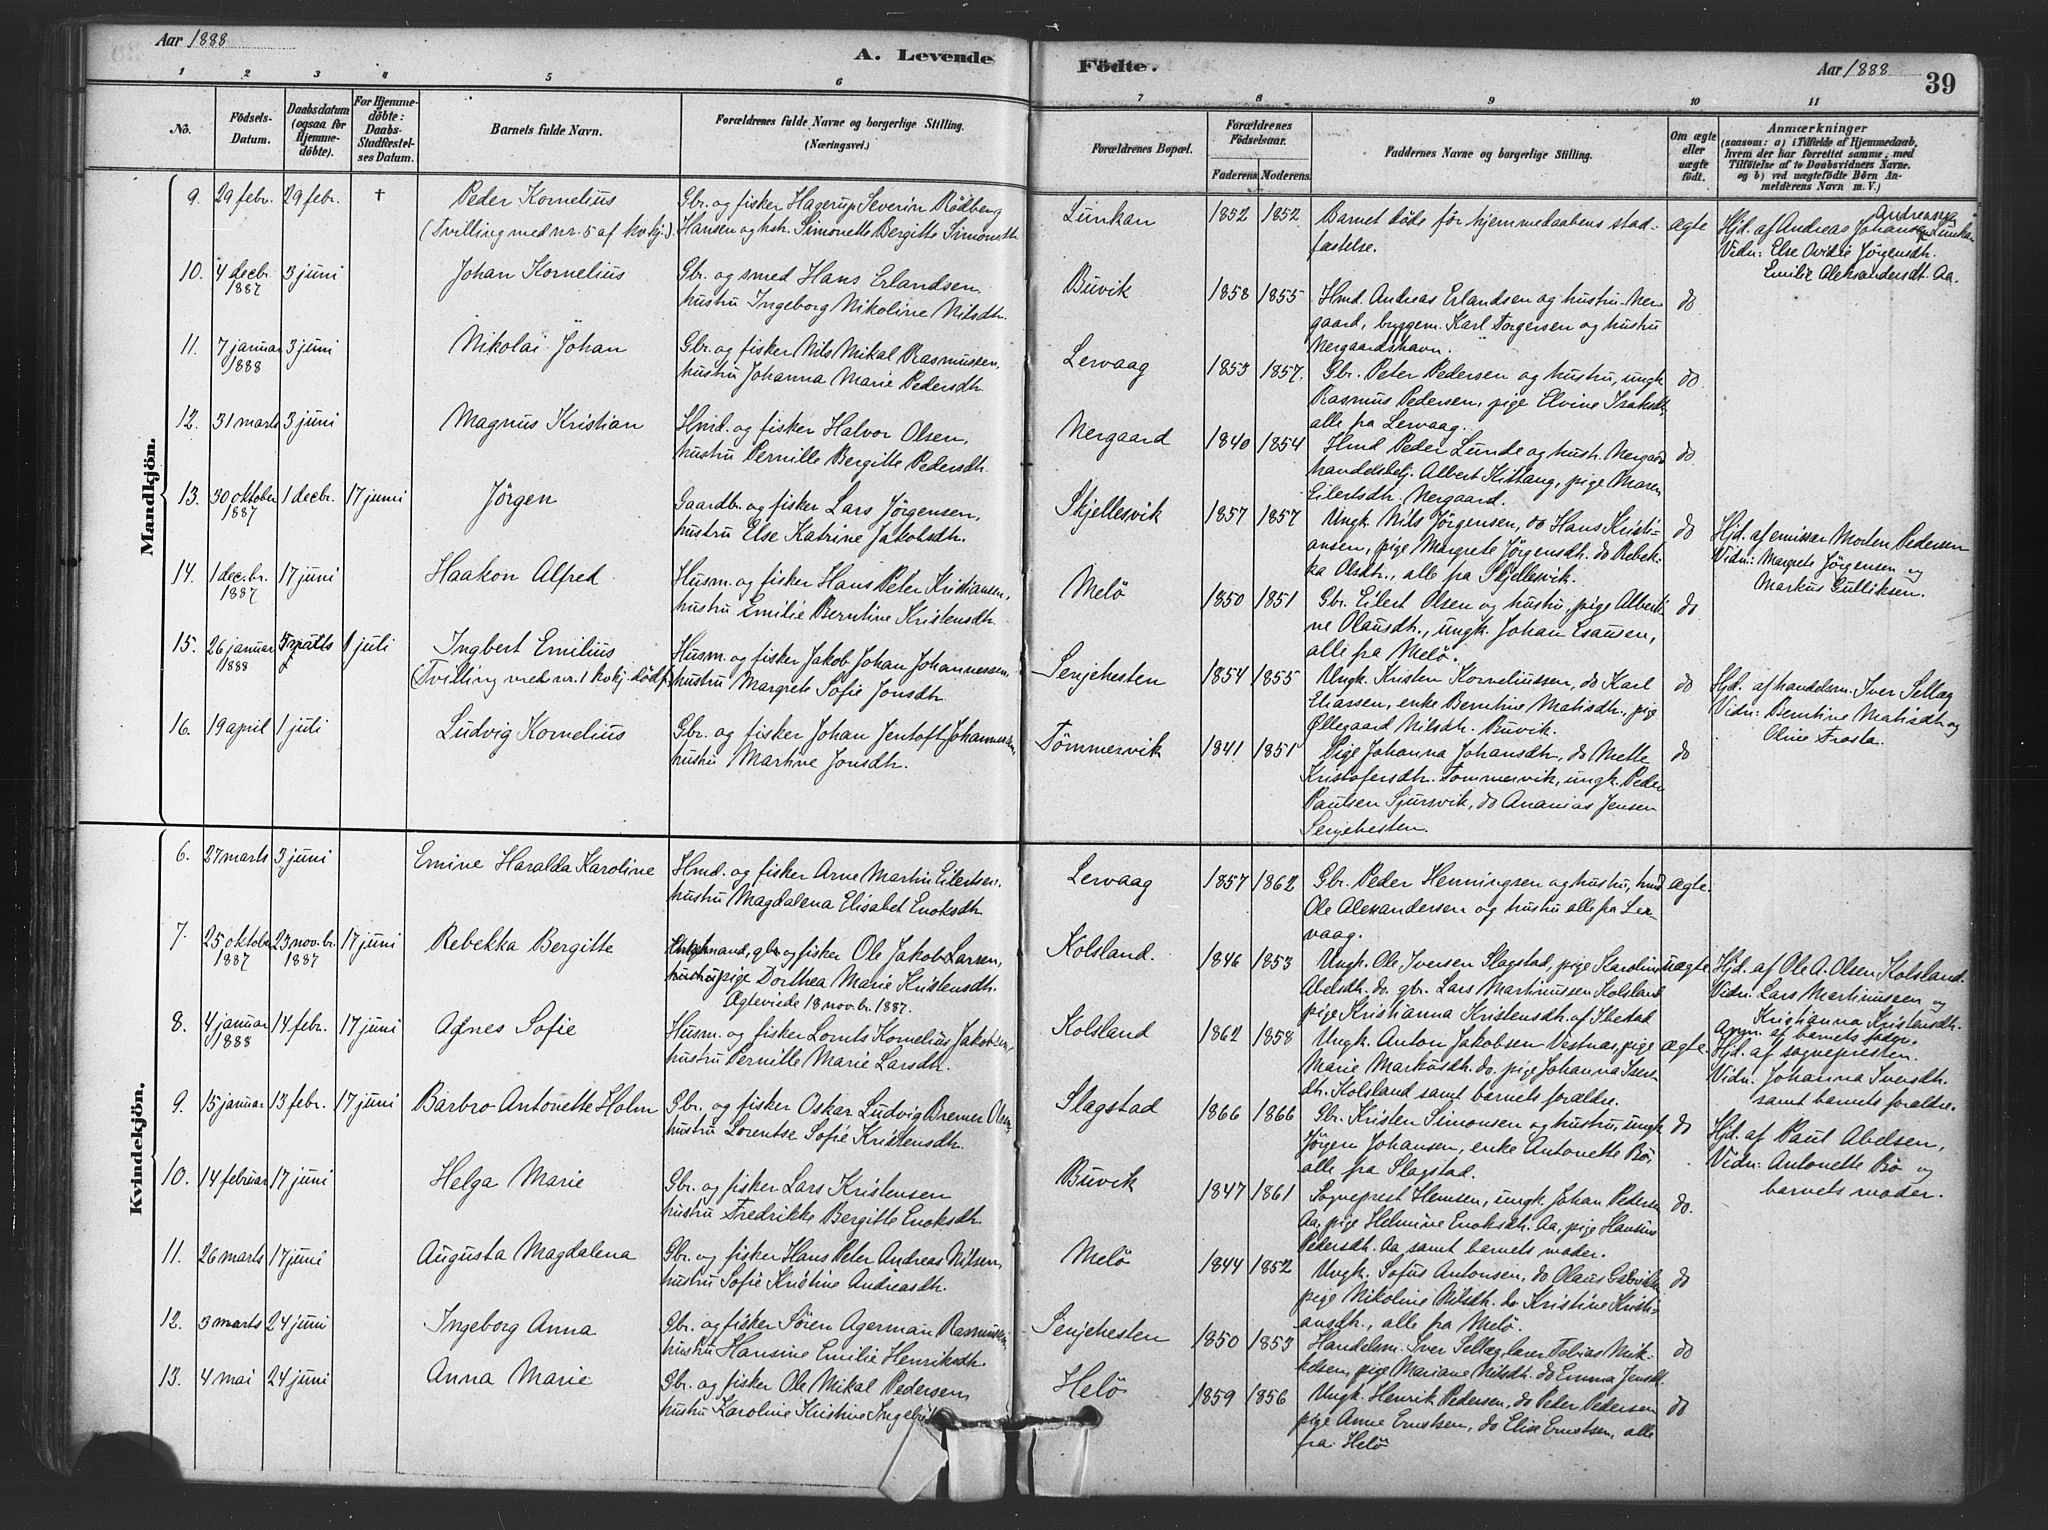 Aar 1888
A. Levende Födte.
Aar 1888
39
1 2 3 4 5 6 7 8 9 10 11
No.
Födsels-Datum.
Daabsdatum (ogsaa for Hjemme-döbte).
For Hjemme-döbte: Daabs-Stadfæstel-ses Datum.
Barnets fulde Navn.
Forældrenes fulde Navne og borgerlige Stilling. (Næringsvei.)
Forældrenes Bopæl.
Forældrenes Födselsaar. Faderens Moderens
Faddernes Navne og borgerlige Stilling.
Om ægte eller uægte födt.
Anmærkninger (saasom: a) i Tilfælde af Hjemmedaab, hvem der har forrettet samme, med Tilföielse af to Daabsvidners Navne. og b) ved uægtefödte Börn An-melderens Navn m. V.)
Mandkjön.
9. 29 febr. 29 febr. + Peder Kornelius
(Tvilling med nr. 5 af kvkj.).
Gbr. og fisker Hagerup Severin Rödberg
Hansen og hstr. Simonette Bergitte Simonsdtr.
Lunkan 1852 1852
Barnet döde för hjemmedaabens stad-
fæstelse.
ægte
Hjd. af Andreas Johan Andreassen Lunkan
Vidn: Else Ovidie Jörgensdtr.
Emilie Aleksandersdt. Aa.
10. 4 decbr. 1887 3 juni Johan Kornelius
Gbr. og smed Hans Erlandsen
hustru Ingeborg Nikoline Nilsdtr.
Buvik 1858 1855
Hmd. Andreas Erlandsen og hustru Ner-
gaard, byggem. Karl Torgersen og hustru
Nergaardshavn.
do
11. 7 januar 1888 3 juni Nikolai Johan
Gbr. og fisker Nils Mikal Rasmussen,
hustru Johanna Marie Pedersdtr.
Lervaag 1853 1857.
Gbr. Peter Pedersen og hustru, ungk.
Rasmus Pedersen, pige Elvine Isaksdtr.
alle fra Lervaag.
do
12. 31 marts 3 juni Magnus Kristian
Hmd. og fisker Halvor Olsen,
hustru Pernille Bergitte Pedersdtr.
Nergaard 1840 1854
Hmd Peder Lunde og hustr. Nergaard
handelsbetj. Albert Kittang, pige Maren
Eilertsdtr. Nergaard.
do
13. 30 oktober 1887 1 decbr. 17 juni Jörgen
Gaardbr. og fisker Lars Jörgensen,
hustru Else Katrine Jakobsdtr.
Skjellesvik 1857 1857
Ungk. Nils Jörgensen, do Hans Kristi-
ansen, pige Margrete Jörgensdtr. do Rebek-
ka Olsdtr., alle fra Skjellesvik.
do
Hjd. af emissær Morten Pedersen
Vidn: Margrete Jörgensen og
Markus Gulliksen.
14. 1 decbr. 1887 17 juni Haakon Alfred
Husm. og fisker Hans Peter Kristiansen,
hustru Emilie Berntine Kristensdtr.
Melö 1850 1851
Gbr. Eilert Olsen og hustru, pige Alberti-
ne Olausdtr., ungk. Johan Esausen,
alle fra Melö.
do
15. 26 januar 1888 1 juli Ingbert Emilius
(Tvilling med nr. 1 kvkj. dödf.
Husm. og fisker Jakob Johan Johannessen,
hustru Margrete Sofie Jonsdtr.
Senjehesten 1854 1855
Ungk. Kristen Korneliussen, do Karl
Eliassen, enke Berntine Matisdtr., pige
Øllegaard Nilsdtr. Buvik.
do
Hjd. af handelsm. Iver Selläg
Vidn: Berntine Matisdtr. og
Oline Frosta.
16. 19 april 1 juli Ludvig Kornelius
Gbr. og fisker Johan Jentoft Johannessen,
hustru Martine Jonsdtr.
Tömmervik 1841 1851
Pige Johanna Johansdtr., do Mette
Kristofersdtr. Tömmervik, ungk. Peder
Paulsen Sjursvik, do Ananias Jensen
Senjehesten.
do
Kvindekjön.
6. 27 marts 3 juni Emine Haralda Karoline
Hmd. og fisker Arne Martin Eilertsen,
hustru Magdalena Elisabet Enoksdtr.
Lervaag 1857 1862
Gbr. Peder Henningsen og hustru, hmd
Ole Alexandersen og hustru alle fra Ler-
vaag.
ægte.
7. 25 oktober 1887 23 novbr. 1887 17 juni Rebekka Bergitte
Enkemand, gbr. og fisker Ole Jakob Larsen,
pige Dorthea Marie Kristensdtr.
Ægteviede 18 novbr. 1887.
Kolsland. 1846 1853
Ungk. Ole Iversen Slagstad, pige Karoline
Abelsdtr. do. gbr. Lars Martinussen Kolsland
pige Kristianna Kristensdtr. af Ibestad
uægte
Hjd. af Ole A. Olsen Kolsland.
Vidn: Lars Martinussen og
Kristianna Kristensdtr.
Anm. af barnets fader.
8. 4 januar 1888 14 febr. 17 juni Agnes Sofie
Husm. og fisker Lornts Kornelius Jakobsen,
hustru Pernille Marie Larsdtr.
Kolsland 1862 1858
Ungk. Anton Jakobsen Vestnes, pige
Marie Markusdtr. do. pige Johanna Ivers-
dtr. Kolsland samt barnets forældre.
ægte.
Hjd. af sognepresten.
Vidn: Johanna Iversdtr.
samt barnets forældre.
9. 15 januar 13 febr. 17 juni Barbro Antonette Holm
Gbr. og fisker Oskar Ludvig Bremer Olsen,
hustru Lorentse Sofie Kristensdtr.
Slagstad 1866 1866
Gbr. Kristen Simonsen og hustru, ungk.
Jörgen Johansen, enke Antonette Bö,
alle fra Slagstad.
do
Hjd. af Paul Abelsen,
Vidn: Antonette Bö og
barnets moder.
10. 14 februar 17 juni Helga Marie
Gbr. og fisker Lars Kristensen
hustru Fredrikke Bergitte Enoksdtr.
Buvik 1847 1861
Sogneprest Hemsen, ungk. Johan Pedersen
Aa, pige Helmine Enoksdtr. Aa, pige Hansine
Pedersdtr. Aa samt barnets moder.
do.
11. 26 marts 17 juni Augusta Magdalena
Gbr. og fisker Hans Peter Andreas Nilsen,
hustru Sofie Kristine Andreasdtr.
Melö 1844 1852
Ungk. Sofus Antonsen, do Olaus Gabrielsen
pige Nikoline Nilsdtr. do Kristine Kristi-
ansdtr., alle fra Melö.
do
12. 3 marts 24 juni Ingeborg Anna
Gbr. og fisker Sören Agerman Rasmussen,
hustru Hansine Emilie Henriksdtr.
Senjehesten 1850 1853
Handelsm. Iver Selläg, lærer Tobias Mik-
kelsen, pige Mariane Nilsdtr. do Emma Jensdt.
do
13. 4 mai 24 juni Anna Marie
Gbr. og fisker Ole Mikal Pedersen
hustru Karoline Kristine
Helö 1859 1856
Ungk. Henrik Pedersen, do Peter Pedersen
pige Anne Erntsen, do Elise Erntsen, alle
fra Helö
do